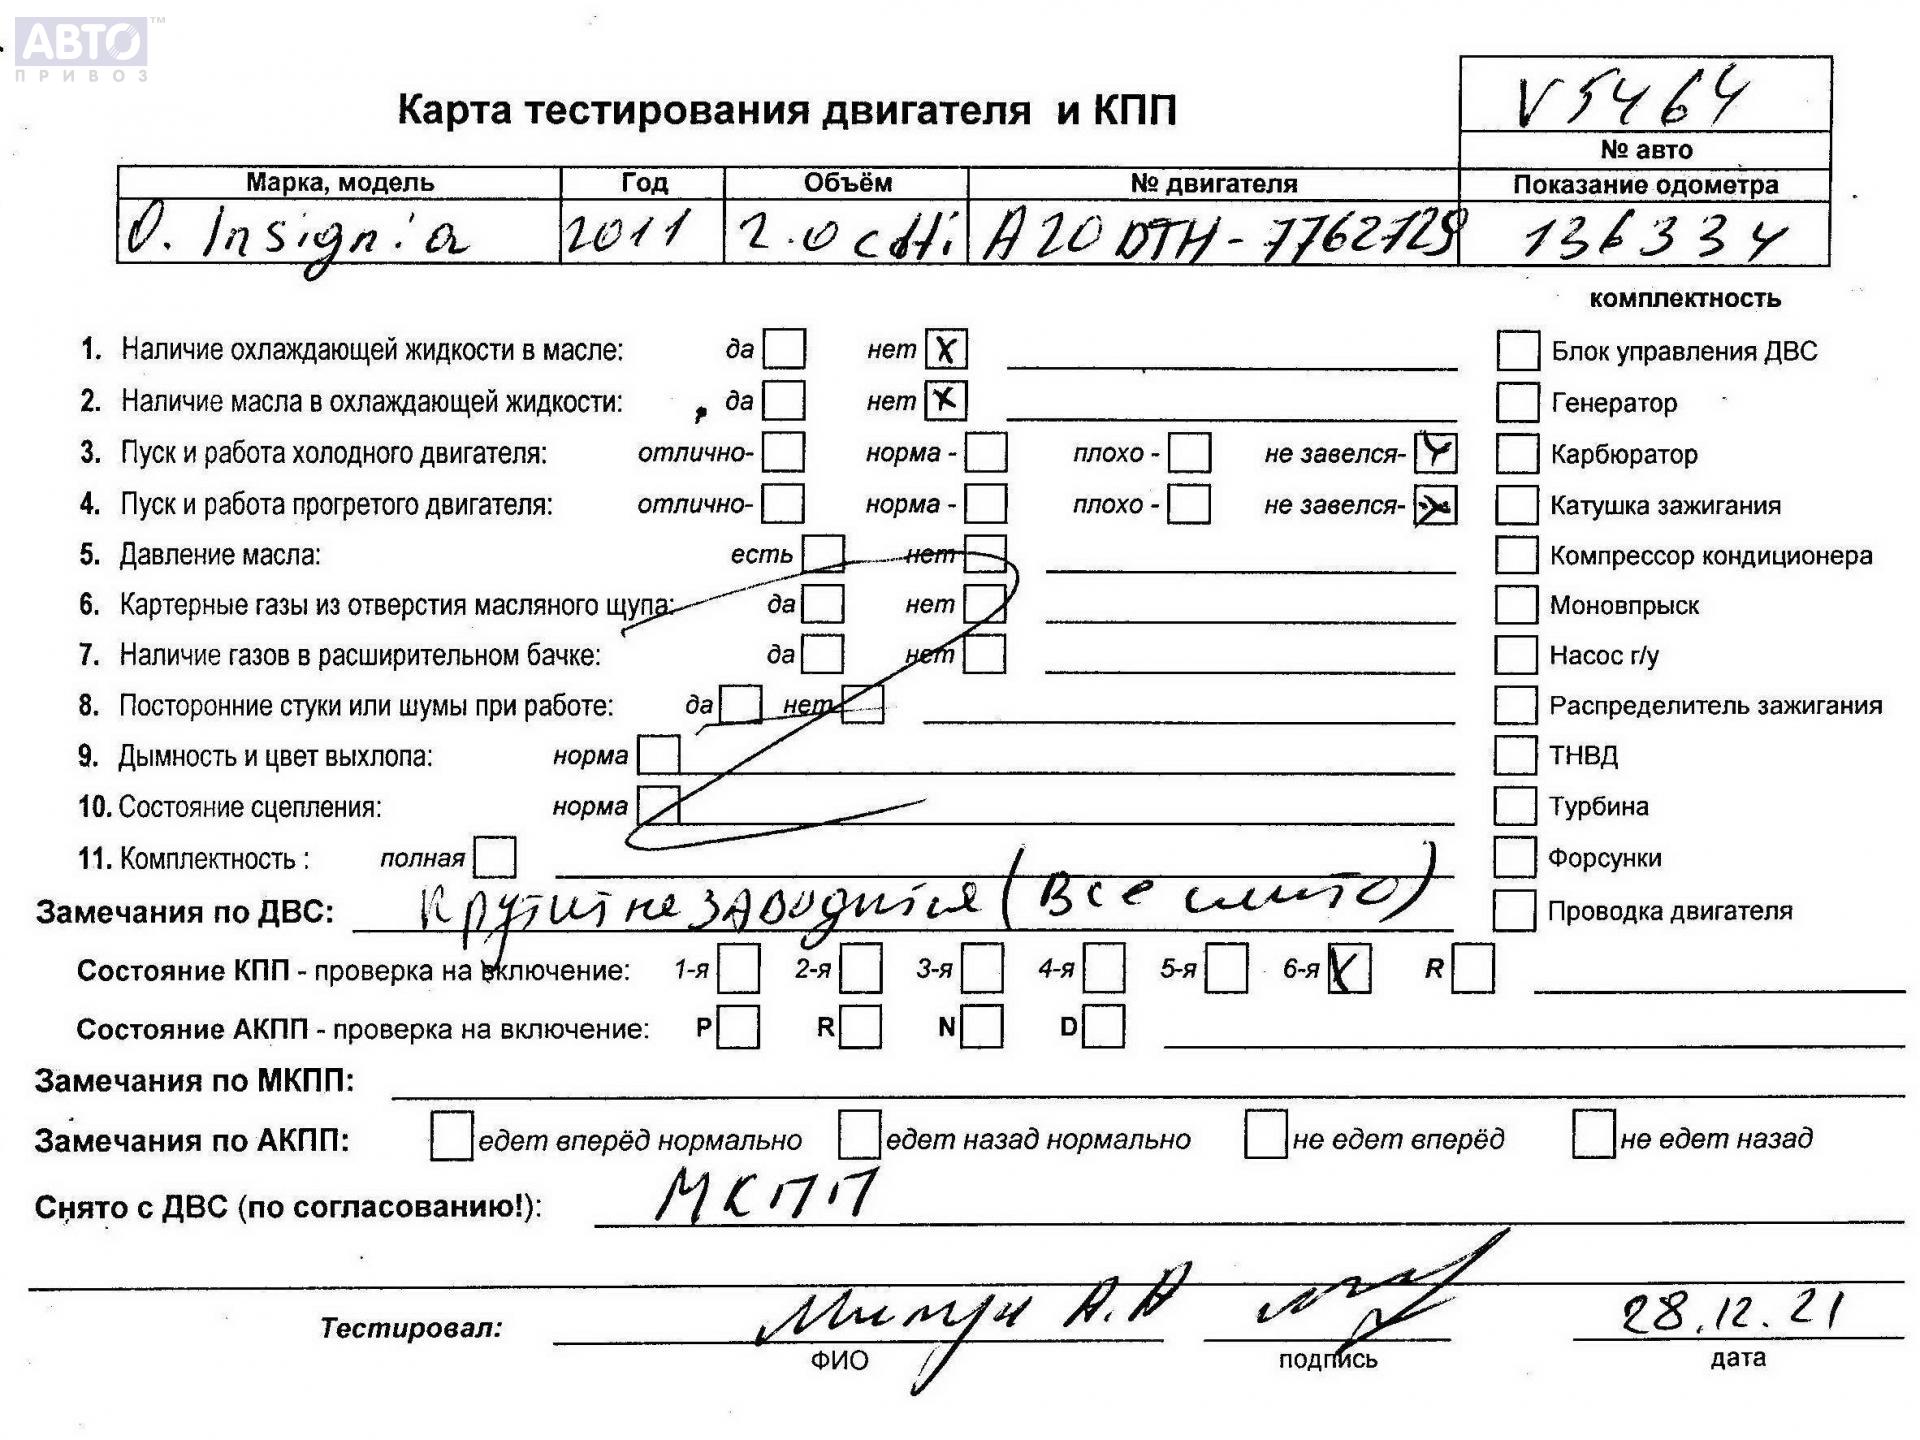 АВТО™
ПРИВОЗ
Карта тестирования двигателя и КПП
V5464
№ авто
Марка, модель Год Объём № двигателя Показание одометра
O. Insignia 2011 2.0 cdti A20DTH-7762729 136334
комплектность
1. Наличие охлаждающей жидкости в масле: да нет X Блок управления ДВС
2. Наличие масла в охлаждающей жидкости: да нет X Генератор
3. Пуск и работа холодного двигателя: отлично- норма - плохо - не завелся- X Карбюратор
4. Пуск и работа прогретого двигателя: отлично- норма - плохо - не завелся- X Катушка зажигания
5. Давление масла: есть нет Компрессор кондиционера
6. Картерные газы из отверстия масляного щупа: да нет Моновпрыск
7. Наличие газов в расширительном бачке: да нет Насос г/у
8. Посторонние стуки или шумы при работе: да нет Распределитель зажигания
9. Дымность и цвет выхлопа: норма ТНВД
10. Состояние сцепления: норма Турбина
11. Комплектность : полная Форсунки
Замечания по ДВС: Крутит не заводится (Все слито) Проводка двигателя
Состояние КПП - проверка на включение: 1-я 2-я 3-я 4-я 5-я 6-я X R
Состояние АКПП - проверка на включение: P R N D
Замечания по МКПП:
Замечания по АКПП: едет вперёд нормально едет назад нормально не едет вперёд не едет назад
Снято с ДВС (по согласованию!): МКПП
Тестировал: А.А 28.12.21
ФИО подпись дата